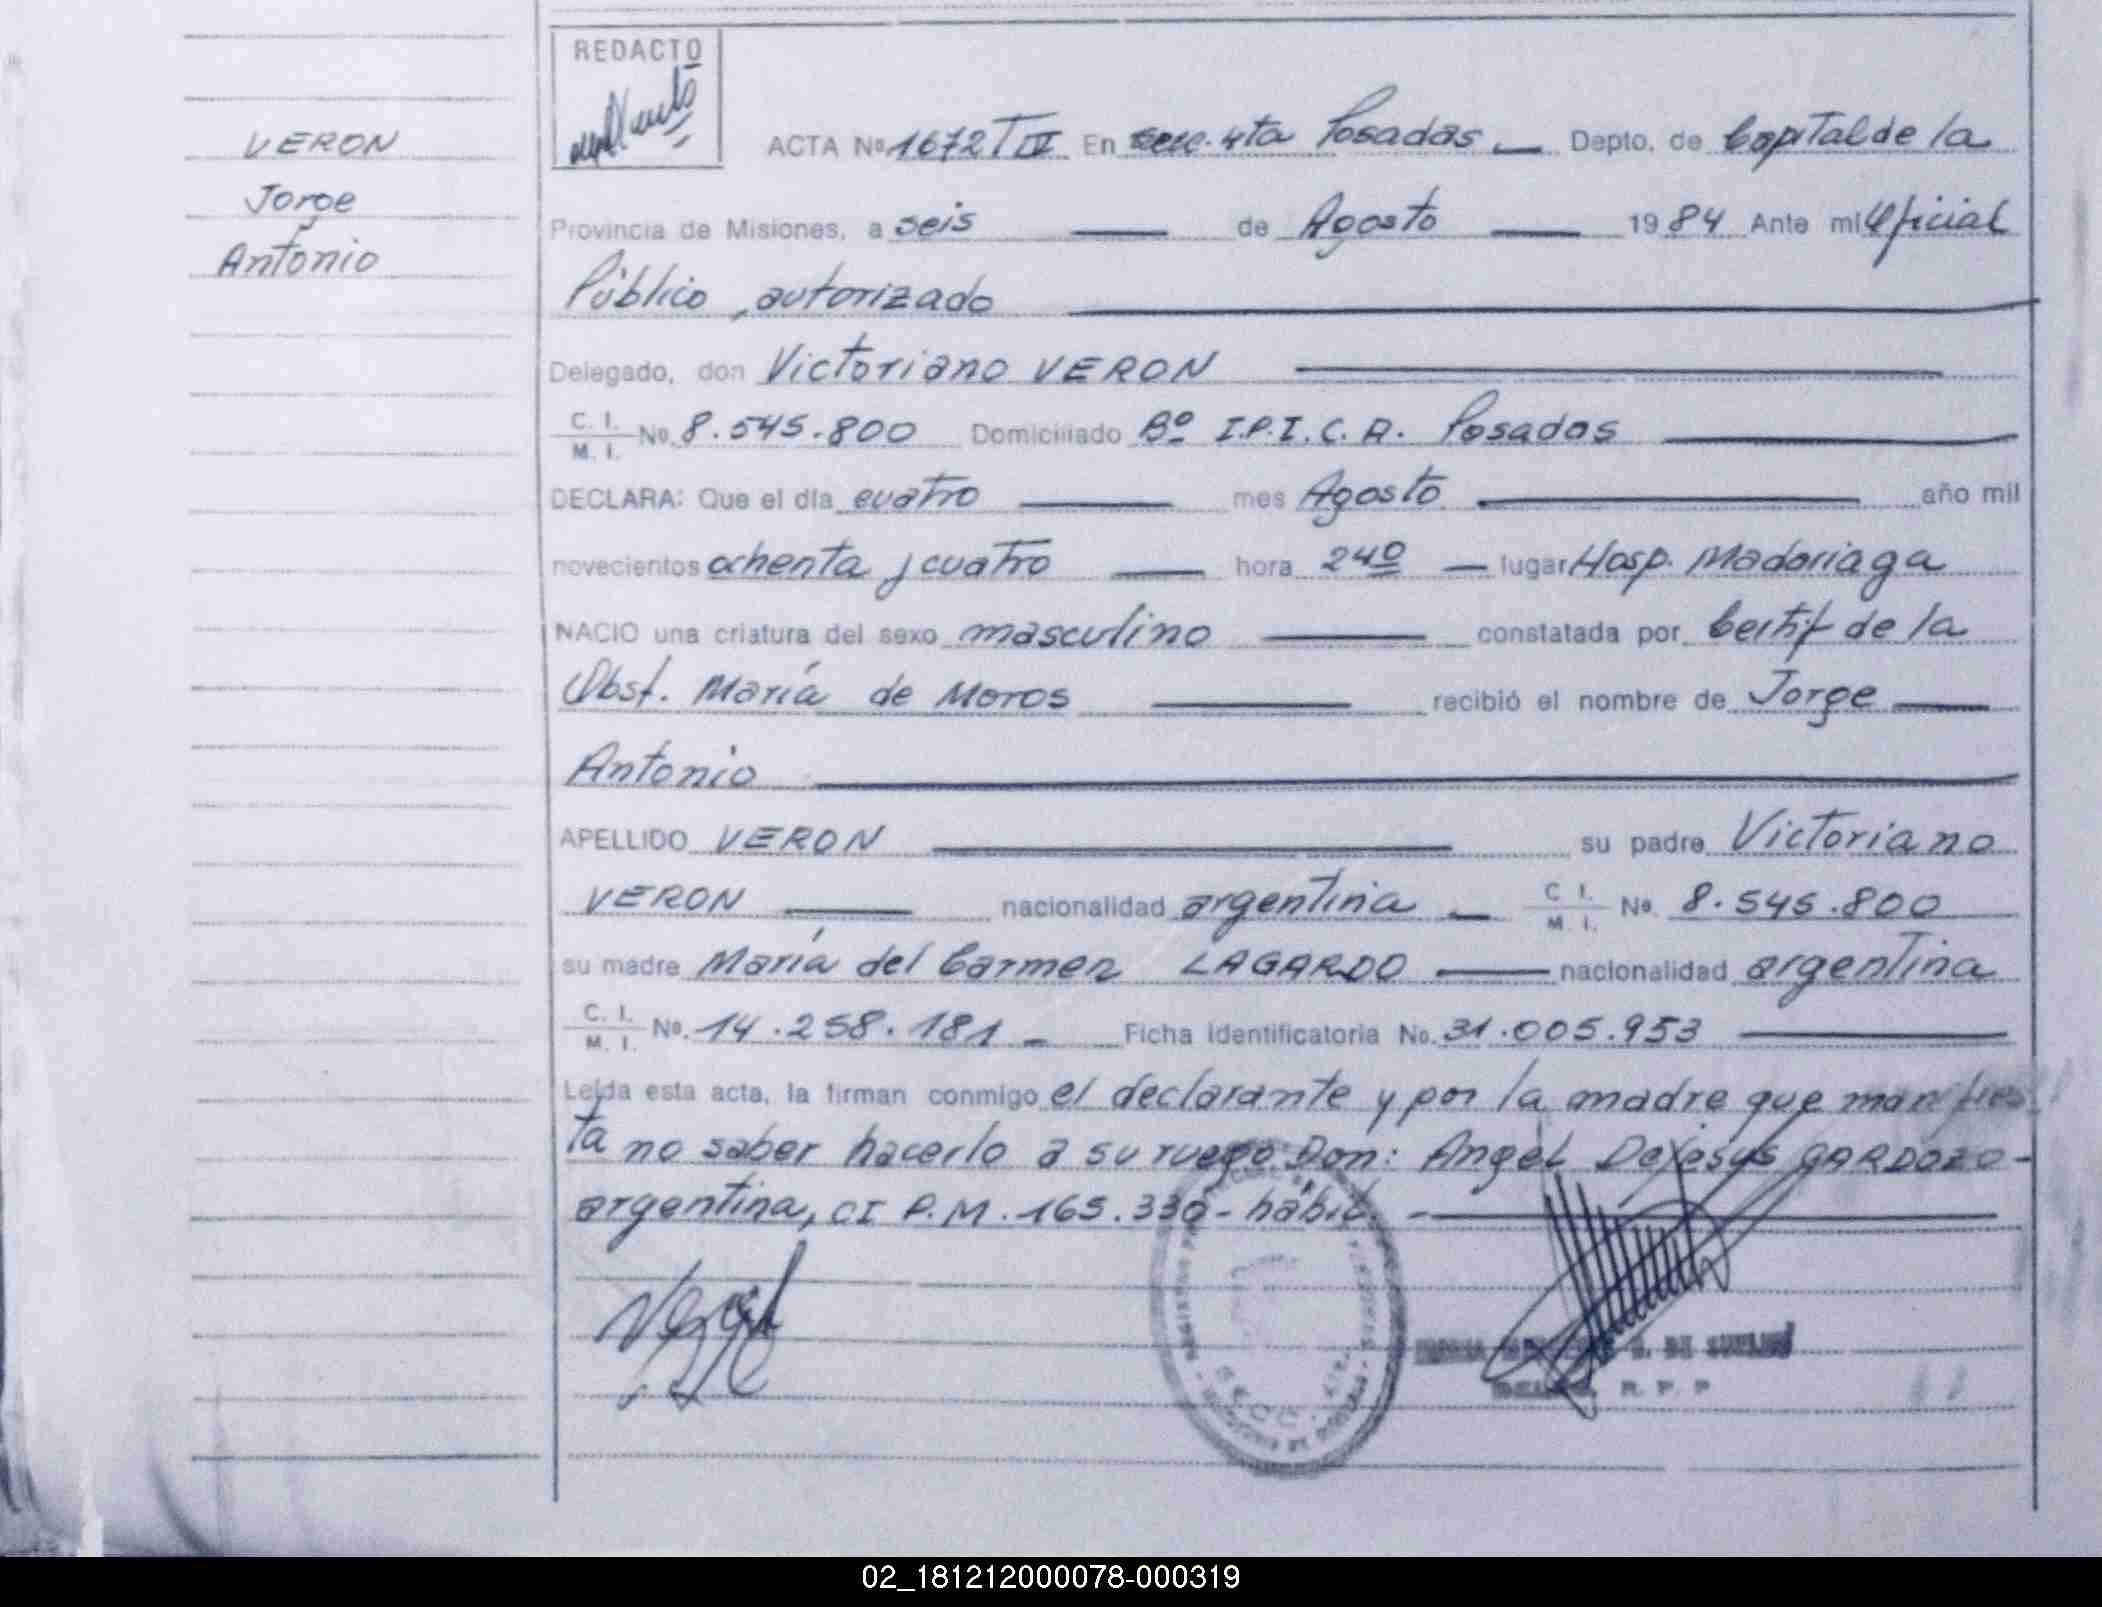 VERON
Jorge
Antonio
REDACTO
ACTA Nº 1672 T IV En secc. 4ta Posadas — Depto. de Capital de la
Provincia de Misiones, a seis — de Agosto — 1984 Ante mi Oficial
Público, autorizado —
Delegado, don Victoriano VERON —
C. I. / M. I. No. 8.545.800 Domiciliado Bº I.P.I.C.A. Posadas —
DECLARA: Que el día cuatro — mes Agosto — año mil
novecientos ochenta y cuatro — hora 24º — lugar Hosp. Madariaga
NACIO una criatura del sexo masculino — constatada por Certif de la
Obst. María de Moros — recibió el nombre de Jorge —
Antonio —
APELLIDO VERON — su padre Victoriano
VERON — nacionalidad argentina — C I. / M. I. Nº. 8.545.800
su madre María del Carmen LAGARDO — nacionalidad argentina
C. I. / M. I. Nº. 14.258.181 — Ficha identificatoria No. 31.005.953 —
Leída esta acta, la firman conmigo el declarante y por la madre que manifies
ta no saber hacerlo a su ruego Don: Angel DeJesús CARDOZO -
argentina, CI P.M. 165.330 - hábil. - —
R. P. P
02_181212000078-000319